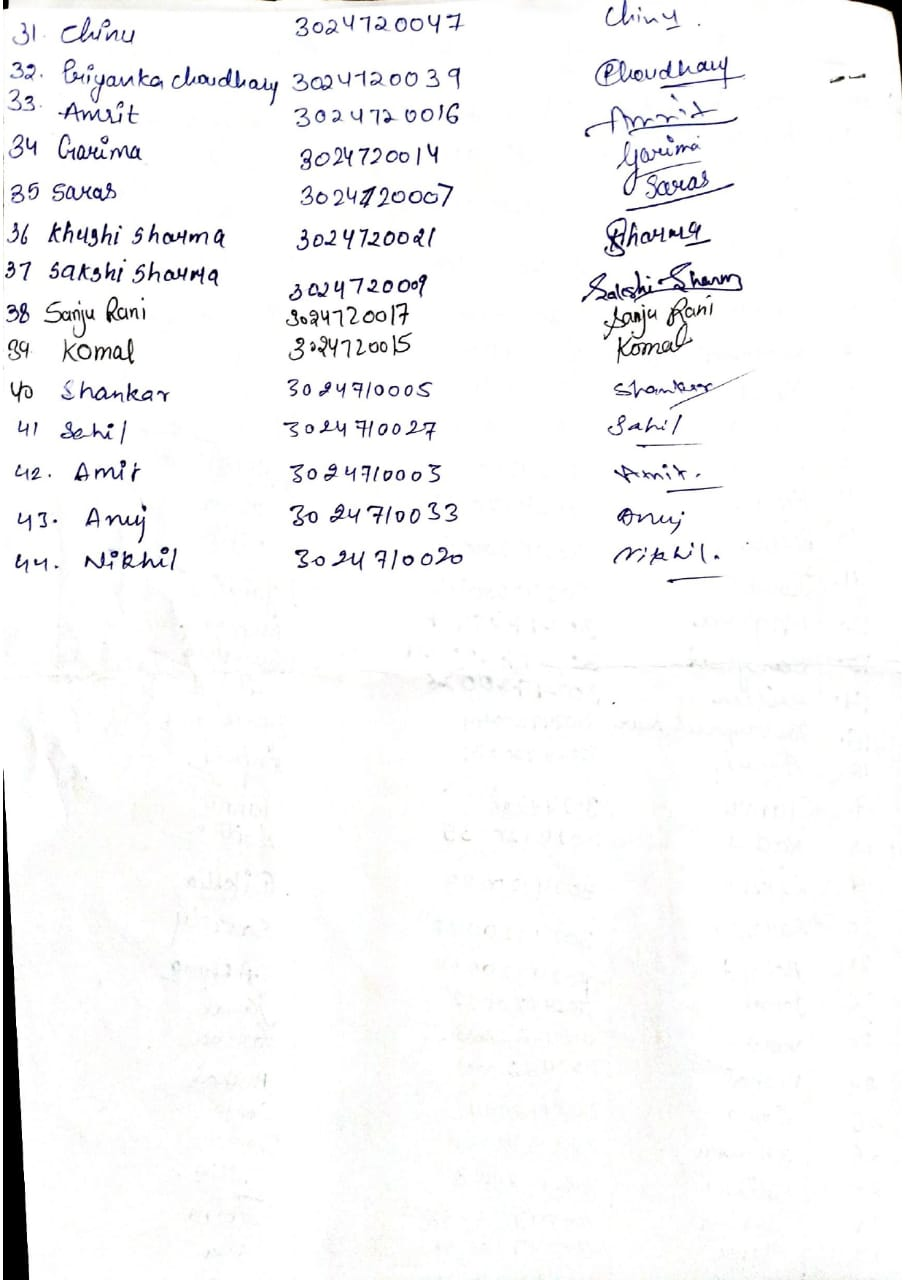 31. Chinu 3024720047 Chinu.
32. Priyanka choudhary 3024720039 Choudhary
33. Amrit 3024720016 Amrit
34 Garima 3024720014 Garima
35 Saras 3024720007 Saras
36 Khushi Sharma 3024720021 Sharma
37 Sakshi Sharma 3024720009 Sakshi Sharm
38 Sanju Rani 3024720017 Sanju Rani
39. Komal 3024720015 Komal
40 Shankar 3024710005 Shankar
41 Sahil 3024710027 Sahil
42. Amit 3024710003 Amit.
43. Anuj 3024710033 Anuj
44. Nikhil 3024710020 Nikhil.